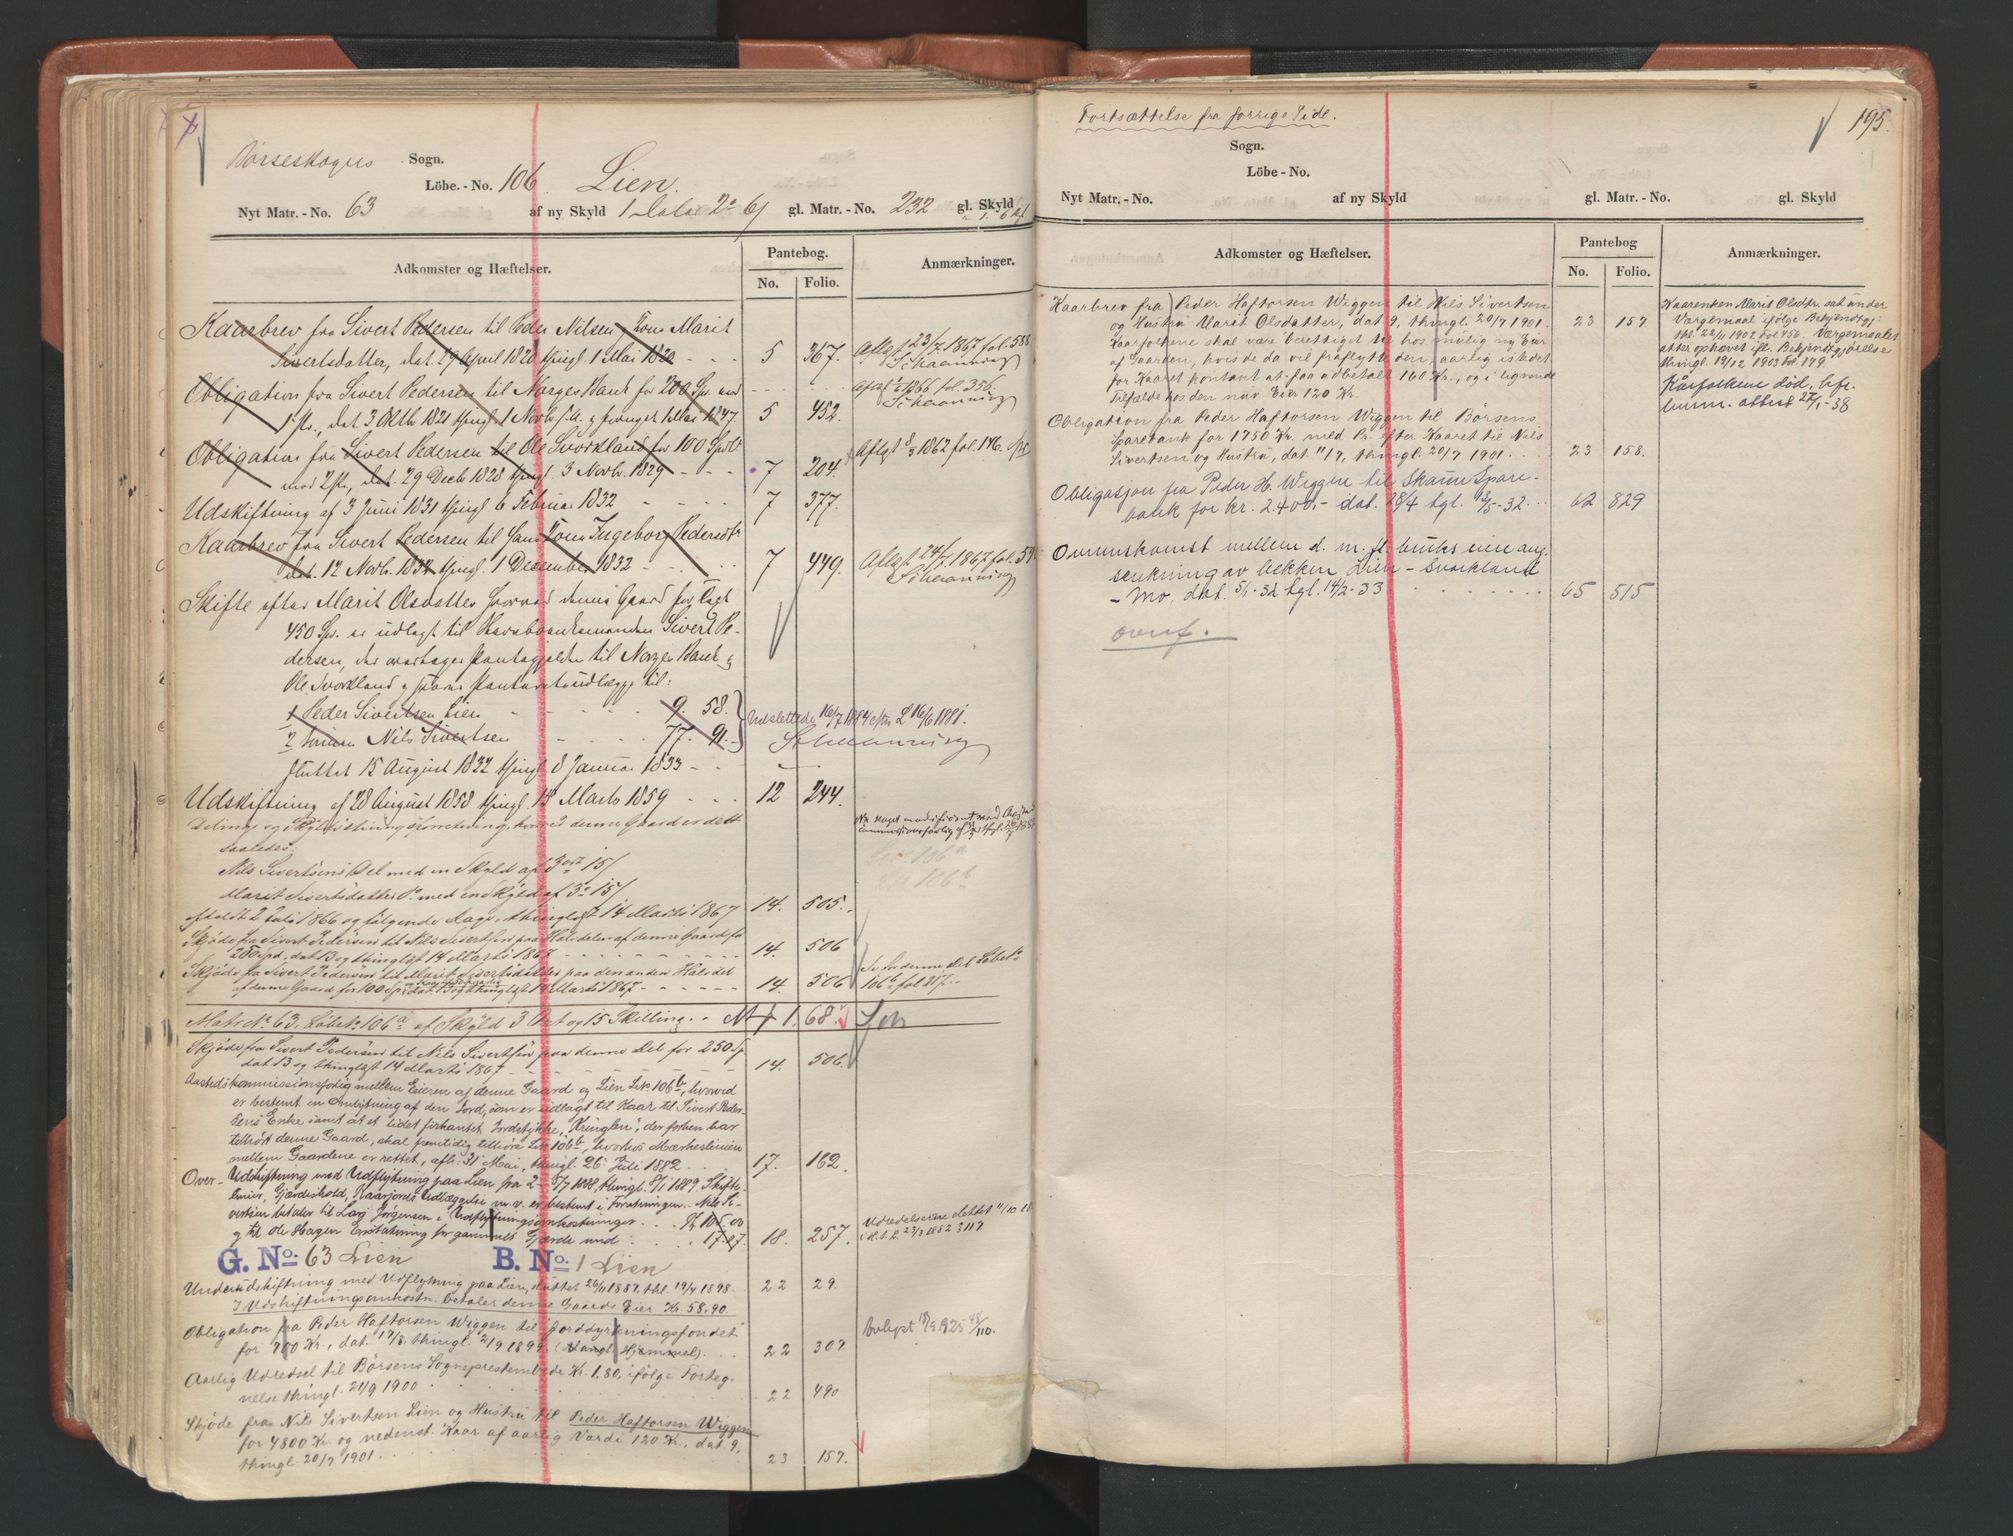 Börseskogns Sogn.
Löbe.-No. 106 Lien.
Nyt Matr.-No. 63 af ny Skyld 1 Daler 2 6 gl. Matr.-No. 232 gl. Skyld
Adkomster og Hæftelser. Pantebog. No. Folio. Anmærkninger.
Kaarbrev fra Sivert Pedersen til Peder Nilsen Kone Marit
Sivertsdatter, dat. 29 April 1820 thingl. 1 Mai 1820 5 367. Aflyst 23/7 1867 fol. 588
Schaanning
Obligation fra Sivert Pedersen til Norges Bank for 200 Sp. mod
1 pr., dat. 3 Oktbr 1821 thingl. 1 Novb. 5 452. 1866 fol. 356.
Schaanning
Obligation fra Sivert Pedersen til Ole Svorkland for 100 Spd
mod 2 pr, dat. 29 Decb 1828 thingl. 3 Novbr. 1829 7 204. Aflyst 1862 fol. 146.
Udskiftning af 3 Juni 1831 thingl. 6 Februar 1832 7 377.
Kaarbrev fra Sivert Pedersen til Kone Ingeborg Pedersdtr
dat. 12 Novb. thingl. 1 December 1832 7 449. Aflyst 24/7 1867 fol.
Schaanning
Skifte efter Marit Olsdatter hvorved denne Gaard for Taxt
450 Sp. er udlagt til Sivert Pe-
dersen, der overtager Pantegjælden til Norges Bank &
Ole Svorkland & til:
1 Peder Sivertsen Lien 9. 58.
2 Sønnen Nils Sivertsen 77. 91. Udslettede 16/7 1884 efter L 16/6 1881.
Schaanning
sluttet 15 August 1832 thingl. 8 Januar 1833
Udskiftning af 28 August 1858 thingl. 15 Marts 1859 12 244.
Delings og Skyldsætningsforretning, hvorved denne Gaard er delt
saaledes:
Nils Sivertsens Del med en Skyld af 3 ort 15
Marit Sivertsdatters Do med en Skyld af 3 15
afholdt 2 Juli 1866 og følgende Dage, thinglyst 14 Marts 1867 14. 505.
Skjøde fra Sivert Pedersen til Nils Sivertsen paa Halvdelen af denne Gaard for
250 Spd, dat. 13 og thinglyst 14 Marts 1867 14. 506
Skjøde fra Sivert Pedersen til Marit Sivertsdatter paa den anden Halvdel
af denne Gaard for 100 Sp. dat. 13 og thinglyst 14 Marts 1867 14. 506 Se for denne Del Løbe No
106b fol. 317.
Matr No 63. Løbe No 106a af Skyld 3 Ort og 15 Skilling. 1.68
Skjøde fra Sivert Pedersen til Nils Sivertsen paa denne Del for 250 Sp
dat 13 og thinglyst 14 Marts 1867 14. 506.
Aastedskommissionsforlig mellem Eieren af denne Gaard og Lien Lk. 106b, hvorved
er bestemt en Ombytning af den Jord, som er udlagt til Kaar til Sivert Peder-
sens Enke samt at et lidet firkantet Jordstykke, "Kringlen", der forhen har
tilhørt denne Gaard, skal fremtidig tilhøre Lk 106b, hvorhos Mærkeslinien
mellem Gaardene er rettet, afh. 31 Mai, thingl. 26 Juli 1882. 17. 162.
Over-Udskiftning med Udflytning paa Lien fra 2-5/7 1888, thingl. 8/1 1889. Skifte-
linier, Gjærdehold, Kaarjords Udlæggelse m. v. er bestemt i Forretningen. Nils Si-
vertsen betaler til Lars Jørgensen i Udflytningsomkostninger
og til Ole Hagen Erstatning for gammelt Gjærde med 17.27. 18. 257.
G. No. 63 Lien B. No. 1 Lien
Underudskiftning med Udflytning paa Lien, sluttet 26/11 1887, thl. 19/4 1898. 22 29.
I Udskiftningsomkostn. betaler denne Gaards Eier Kr. 58.90
Obligation fra Peder Haftorsen Wiggen til Jorddyrkningsfondet
for 700 Kr., dat. 17/8, thingl. 2/9 1899. (Mangl. Hjemmel). 22 307. Avlyst 1925
Aarlig Udredsel til Börsens Sogneprestembede Kr. 1.80, ifölge Forteg-
nelse thingl. 21/9 1900 22 490
Skjöde fra Nils Sivertsen Lien og Hustru til Peder Haftorsen Wiggen
for 4800 Kr. og nedenst. Kaar af aarlig Værdi 120 Kr., dat. 9,
thingl 20/7 1901. 23 157.
Fortsættelse fra forrige Side. 195.
Sogn.
Löbe-No.
Nyt Matr.-No. af ny Skyld gl. Matr.-No. gl. Skyld
Adkomster og Hæftelser. Pantebog No. Folio. Anmærkninger.
Kaarbrev fra Peder Haftorsen Wiggen til Nils Sivertsen
og Hustru Marit Olsdatter, dat. 9, thingl. 20/7 1901. 23 157.
Kaarfolkene skal være berettiget til hos mulig ny Eier
af Gaarden, hvis de da vil fraflytte den, aarlig istedet
for Kaaret kontant at faa udbetalt 160 Kr., og i lignende
Tilfælde hos den nuv. Eier 120 Kr.
Kaarenken Marit Olsdtr. sat under
Værgemaal ifölge Bekjendtgj.
thl. 22/11 1902 Fol 456. Værgemaalet
atter ophævet ifl. Bekjendtgjörelse
thingl. 19/12 1903 Fol. 179.
Kårfolkene død, ifø.
attest 27/1-38
Obligation fra Peder Haftorsen Wiggen til Börsens
Sparebank for 1750 Kr. med Pr. efter Kaaret til Nils
Sivertsen og Hustru, dat. 11/7, thingl. 20/7 1901. 23 158.
Obligasjon fra Peder H. Wiggen til Skaun Spare-
bank for kr. 2.400,- dat. 28/4 tgl. 2/5-32. 62 829
Overenskomst mellem d. m. fl. bruks eiere ang.
senkning av bekken Lien - Svorkland
- Mo, dat. 5/1-32 tgl. 14/2-33 65 515
overf.